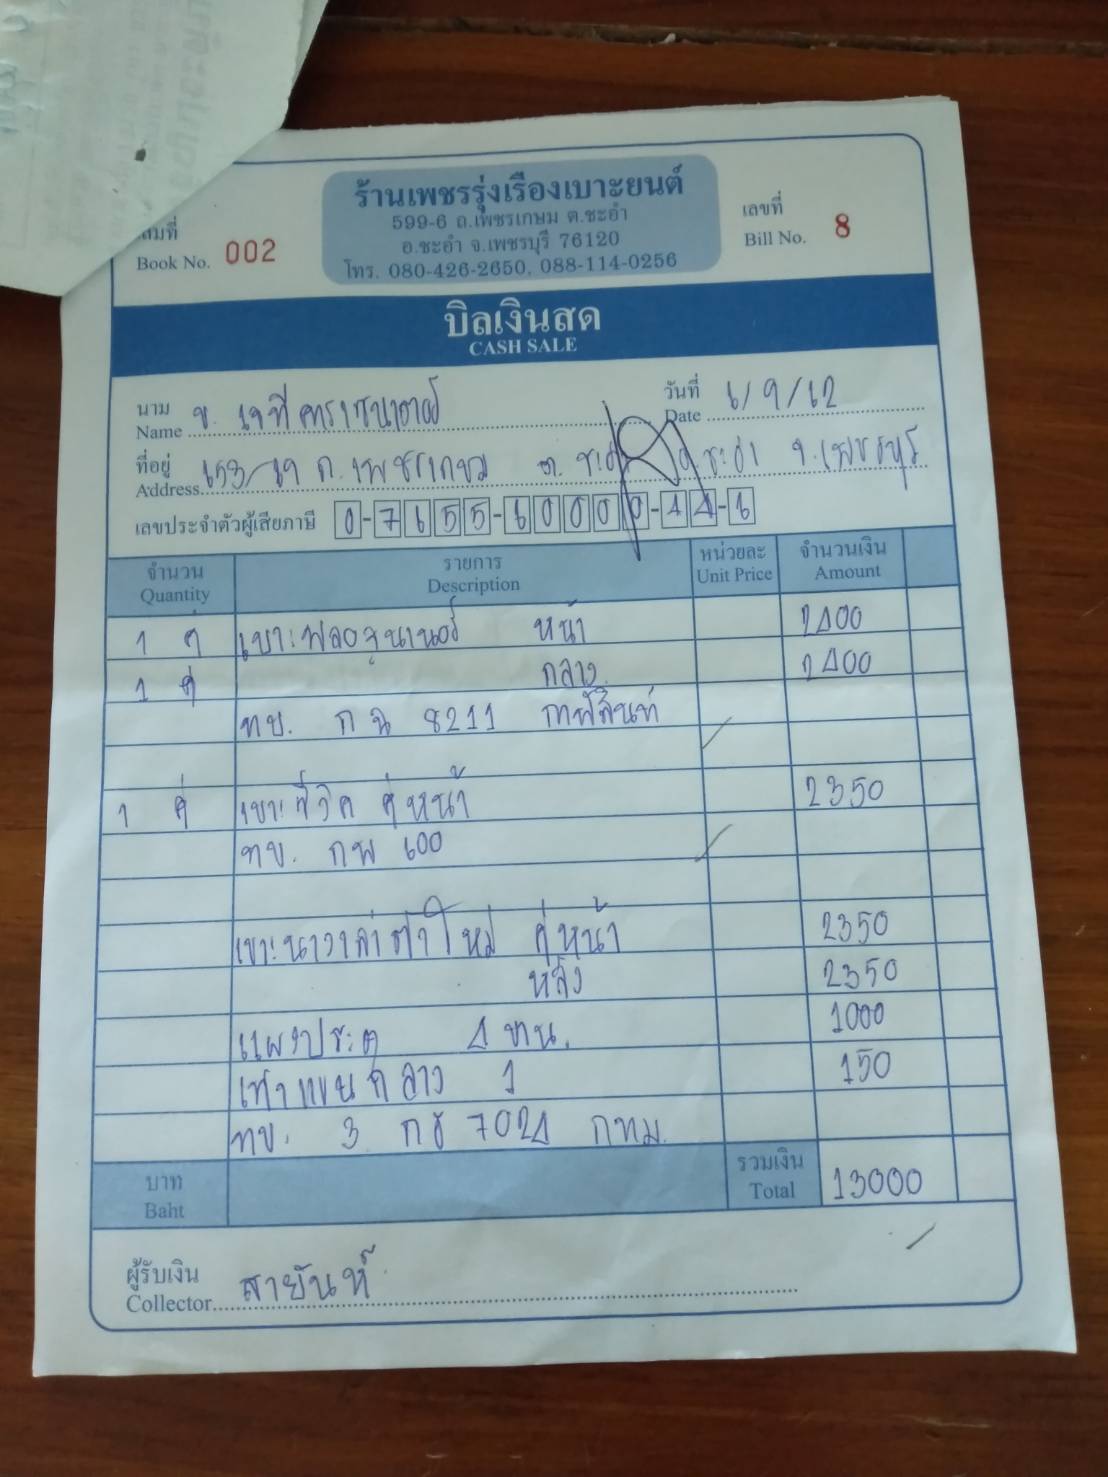 ร้านเพชรรุ่งเรืองเบาะยนต์
599-6 ถ.เพชรเกษม ต.ชะอำ
อ.ชะอำ จ.เพชรบุรี 76120
โทร. 080-426-2650, 088-114-0256
Book No. 002
เลขที่
Bill No. 8
บิลเงินสด
CASH SALE
นาม
Name
วันที่ 6/9/62
Date
ที่อยู่ 153/19 ถ.เพชรเกษม ต. ชะอำ อ.ชะอำ จ.เพชรบุรี
Address
เลขประจำตัวผู้เสียภาษี 0-7655-60000-44-6
จำนวน รายการ หน่วยละ จำนวนเงิน
Quantity Description Unit Price Amount
1 คู่ เบาะฟอจูนเนอร์ หน้า 2400
1 คู่ กลาง 2400
ทบ. กฉ 8211 กาฬสินท์
1 คู่ เบาะซีวิค คู่หน้า 2350
ทบ. กพ 600
เบาะนาวาล่าตัวใหม่ คู่หน้า 2350
หลัง 2350
แผงประตู 4 บาน. 1000
เท้าแขนกลาง 1 150
ทบ. 3 กช 7024 กทม.
บาท รวมเงิน 13000
Baht Total
ผู้รับเงิน สายันห์
Collector